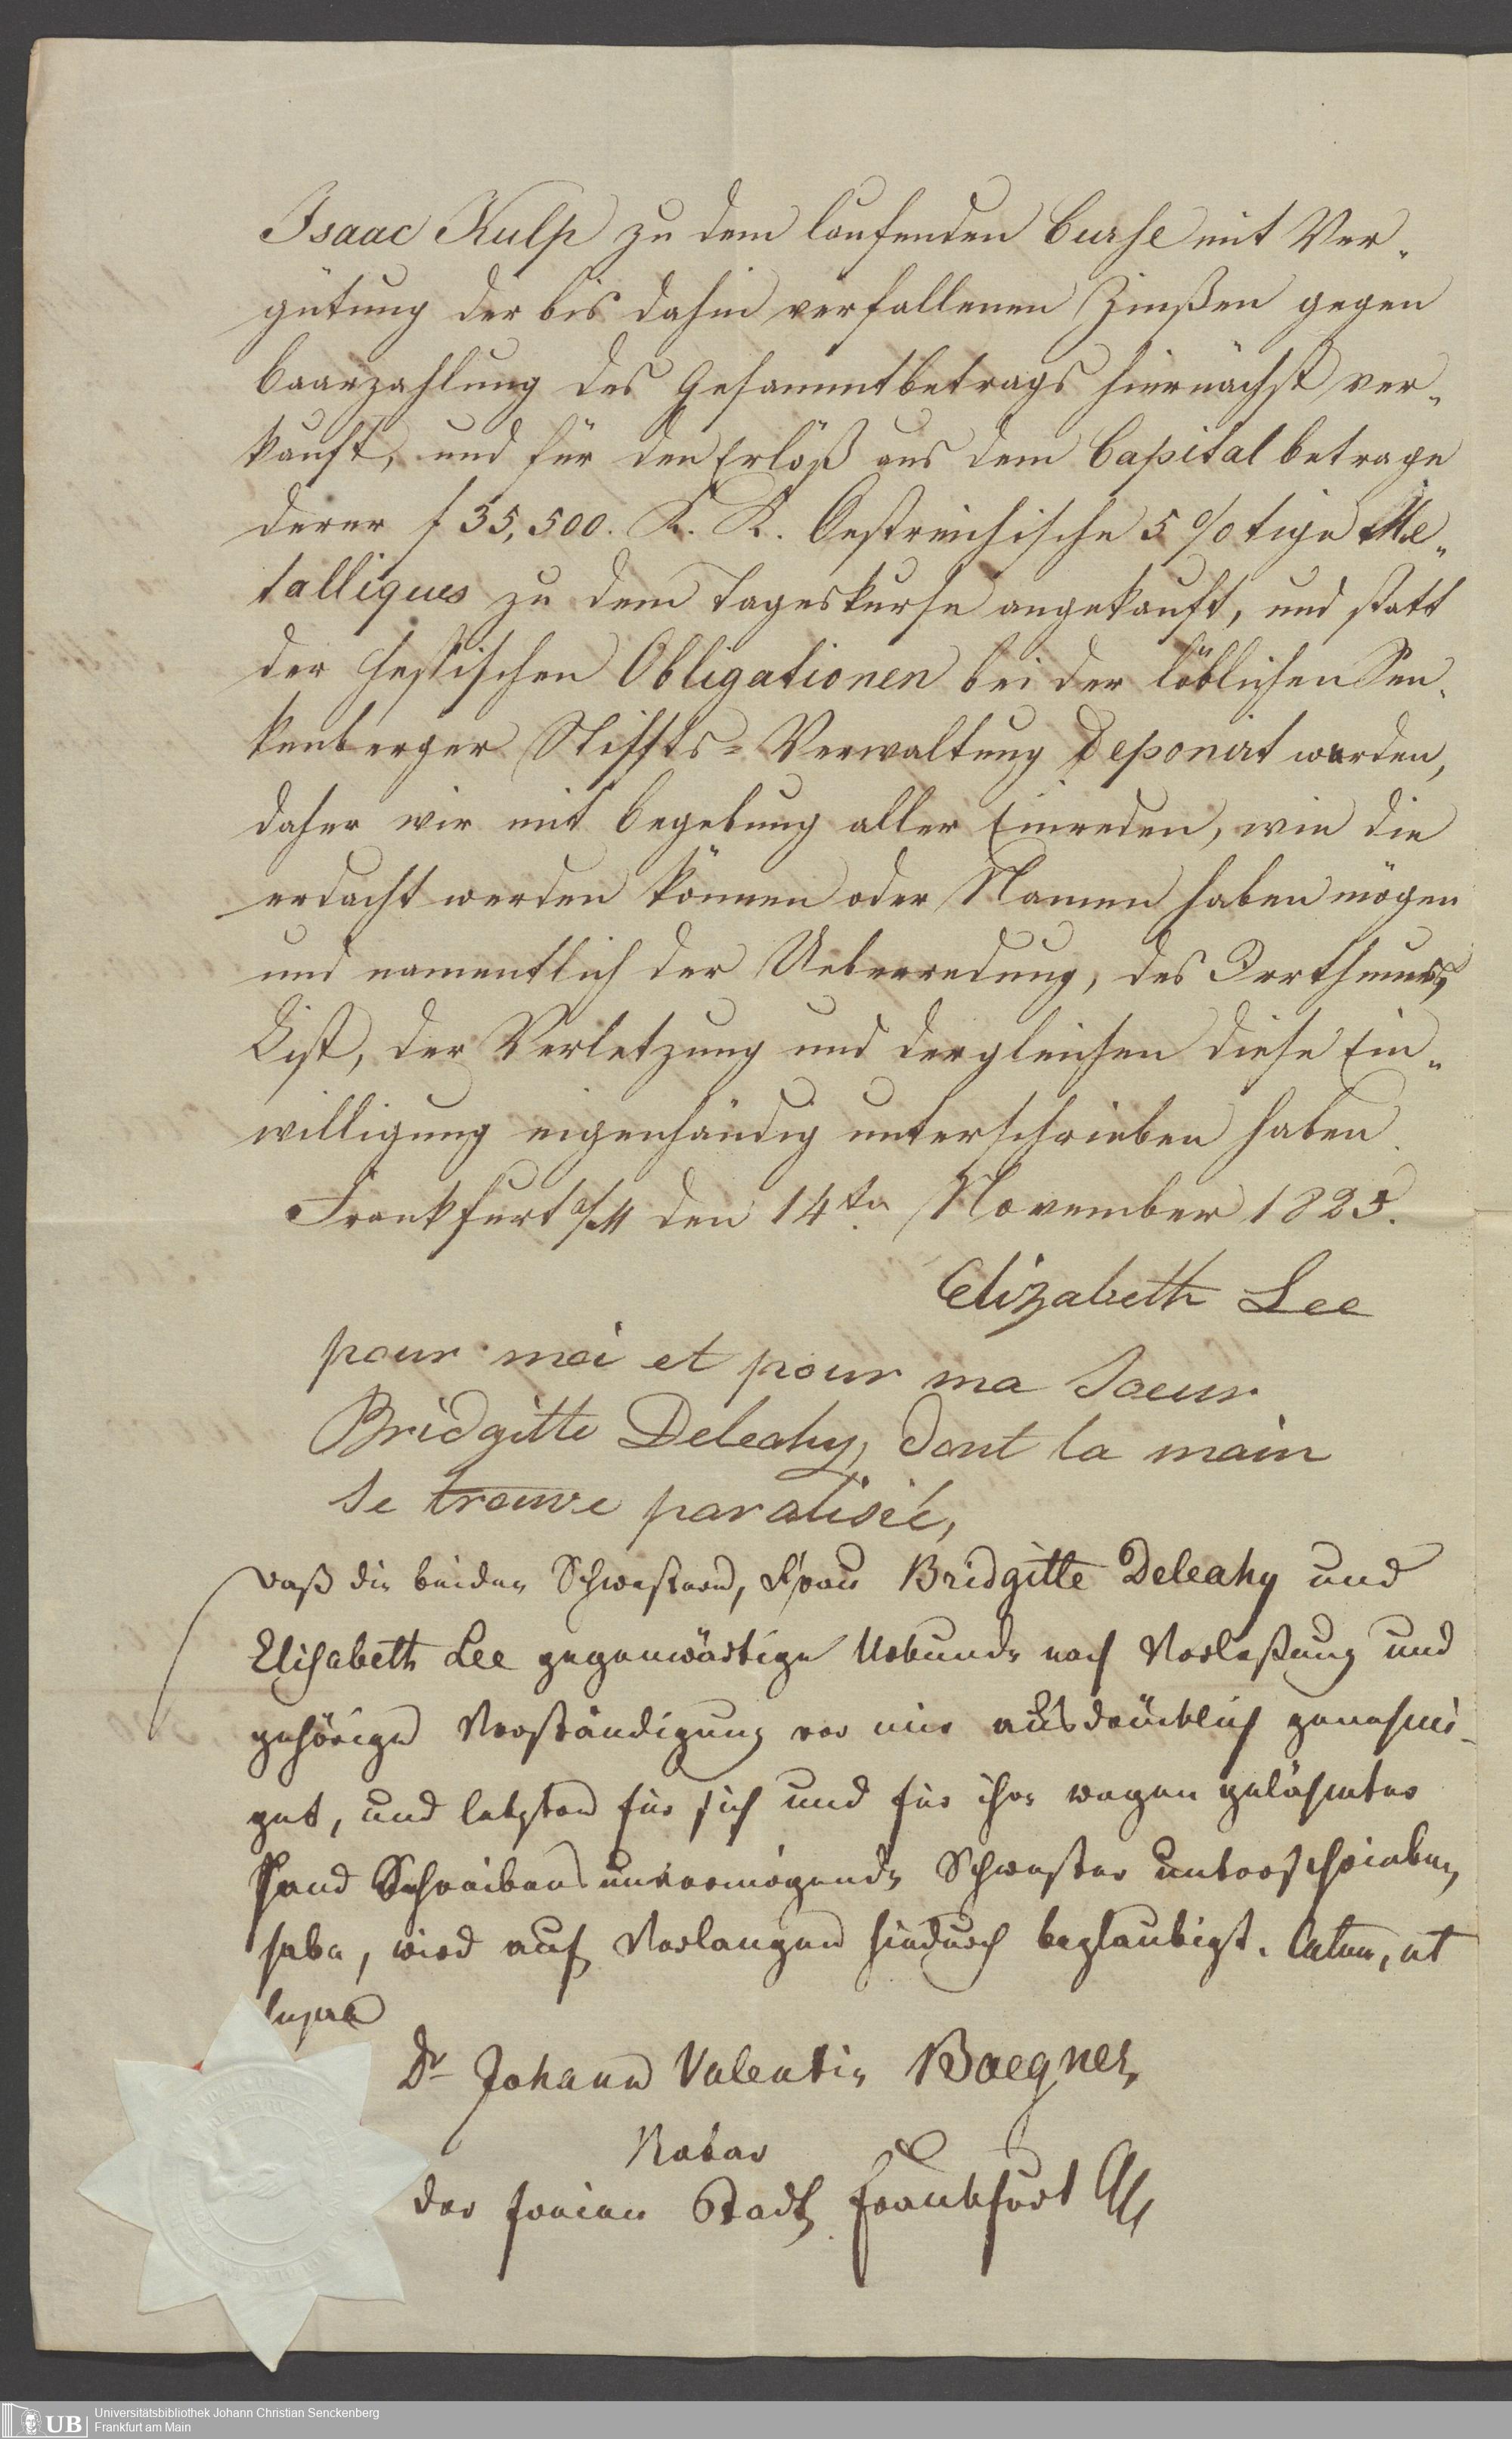 Isaac Kulp zu dem laufenden Curse mit Ver-
gütung der bis dahin verfallenen Zinßen gegen
baarzahlung des Gesammtbetrags hiernächst ver-
kauft, und für den Erlöß aus dem Capital betrage
derer f 35,500. K. K. Oestreichische 5 %tige Me-
talliques zu dem Tageskurse angekauft, und statt
der Hessischen Obligationen bei der löblichen Sen-
kenberger Stiffts-Verwaltung deponirt werden,
daher wir mit Begebung aller Einreden, wie die
erdacht werden können oder Namen haben mögen
und namentlich der Ueberredung, des Irrthums,
List, der Verletzung und dergleichen diese Ein-
willigung eigenhändig unterschrieben haben.
Frankfurt a/M den 14ten November 1825.
Elizabeth Lee
pour moi et pour ma Soeur
Bridgitte Deleahy, dont la main
se trouve paralisée,
Daß die beiden Schwestern, Frau Bridgitte Deleahy und
Elisabeth Lee gegenwärtige Urkunde nach Vorlesung und
gehörige Verständigung vor mir ausdrücklich genehmi-
get, und letztere für sich und für ihre wegen gelähmter
Hand Schreibens unvermögende Schwester unterschrieben
habe, wird auf Verlangen hiedurch beglaubigt. Datum, ut
supra
Dr Johann Valentin Boegner,
Notar
der freien Stadt Frankfurt a/M
UB
Universitätsbibliothek Johann Christian Senckenberg
Frankfurt am Main